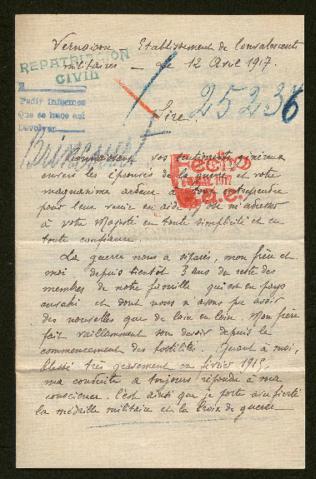 Vernaison Etablissement de Convalescents
militaires - le 12 Avril 1917.
REPATRIACION
CIVIL
Pedir informes
Que se haga aqui
Devolver
Sire
25236
Connaissant vos sentiments généreux
envers les éprouvés de la guerre et votre
magnanime ardeur à tout entreprendre
pour leur venir en aide, je m'adresse
à votre Majesté en toute simplicité et en
toute confiance.
Fecho
1917
La guerre nous a séparés, mon frère et
moi depuis bientôt 3 ans du reste des
membres de notre famille qui est en pays
envahi et dont nous n'avons pu avoir
des nouvelles que de loin en loin. Mon frère
fait vaillamment son devoir depuis le
commencement des hostilités. Quant à moi,
blessé très gravement en février 1915,
ma conduite a toujours répondu à ma
conscience. C'est ainsi que je porte avec fierté
la médaille militaire et la Croix de guerre